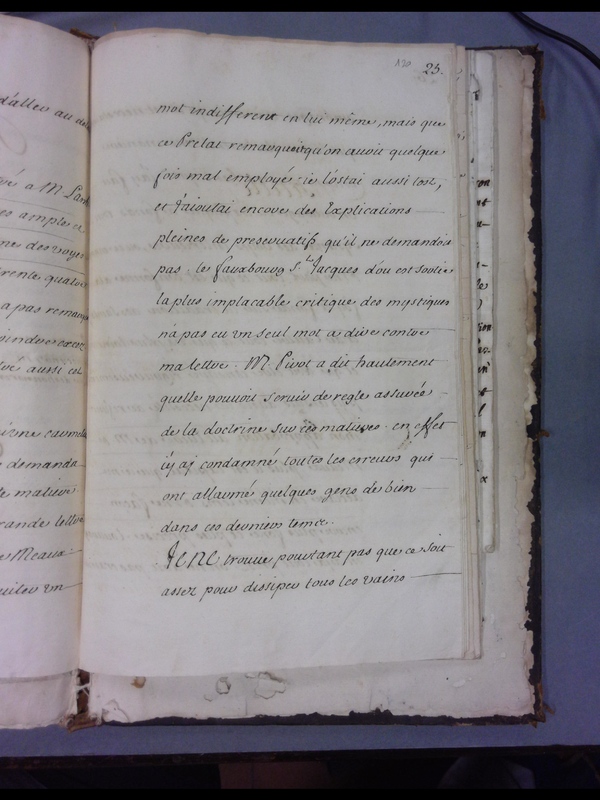 d'aller au
130 25.
mot indifferent en lui même, mais que
ce Prelat remarquoit qu'on avoit quelque
fois mal employé: ie l'ostai aussi tost,
et i'aioutai encore des Explications
pleines de preservatifs qu'il ne demandois
pas. le fauxbourg St. Jacques d'ou est sortie
la plus implacable critique des mystiques
n'a pas eu un seul mot a dire contre
ma lettre. M. Pirot a dit hautement
quelle pouvoit servir de regle assurée
de la doctrine sur ces matieres. en effet
i'y aj condamné toutes les erreurs qui
ont allarmé quelques gens de bien
dans ces derniers temps.
Je ne trouve pourtant pas que ce soit
assez pour dissiper tous les vains
a M.
es ample et
me des
quatre
a pas
aussi
demanda
matiere
grande lettre
Meaux
un